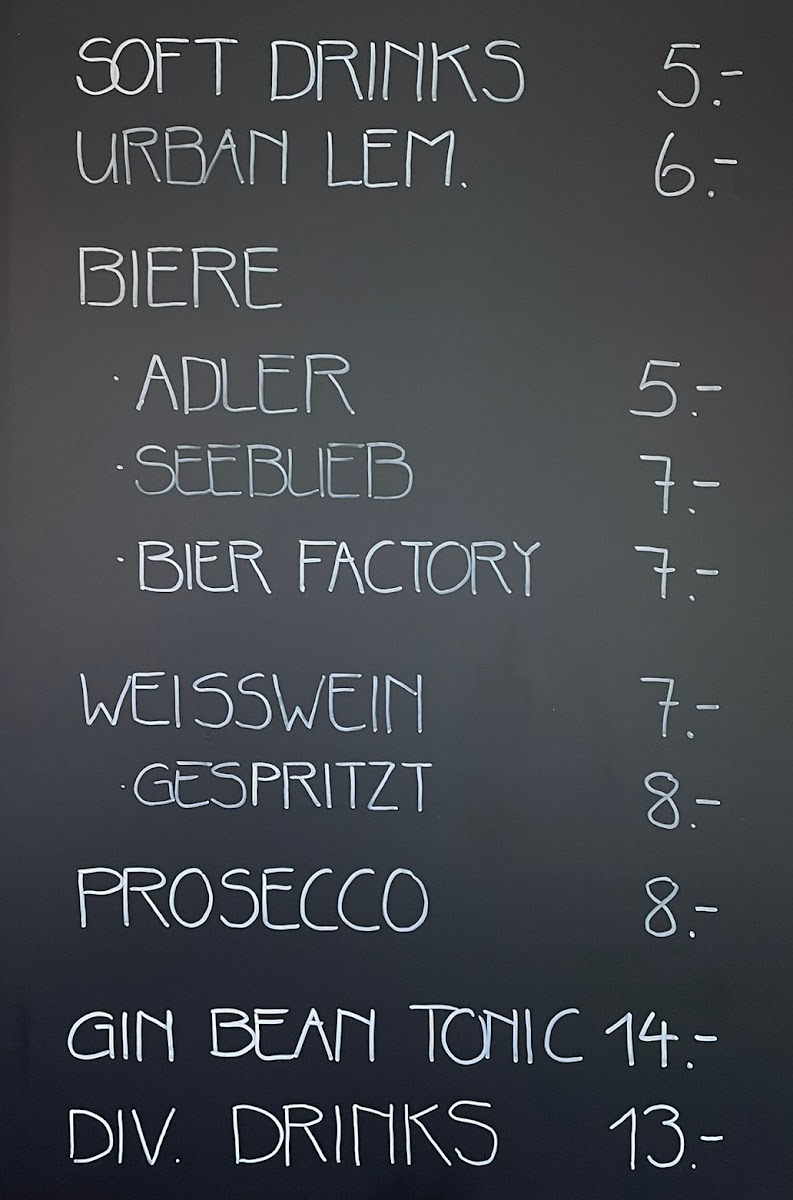 SOFT DRINKS 5.-
URBAN LEM. 6.-
BIERE
· ADLER 5.-
· SEEBLIEB 7.-
· BIER FACTORY 7.-
WEISSWEIN 7.-
· GESPRITZT 8.-
PROSECCO 8.-
GIN BEAN TONIC 14.-
DIV. DRINKS 13.-